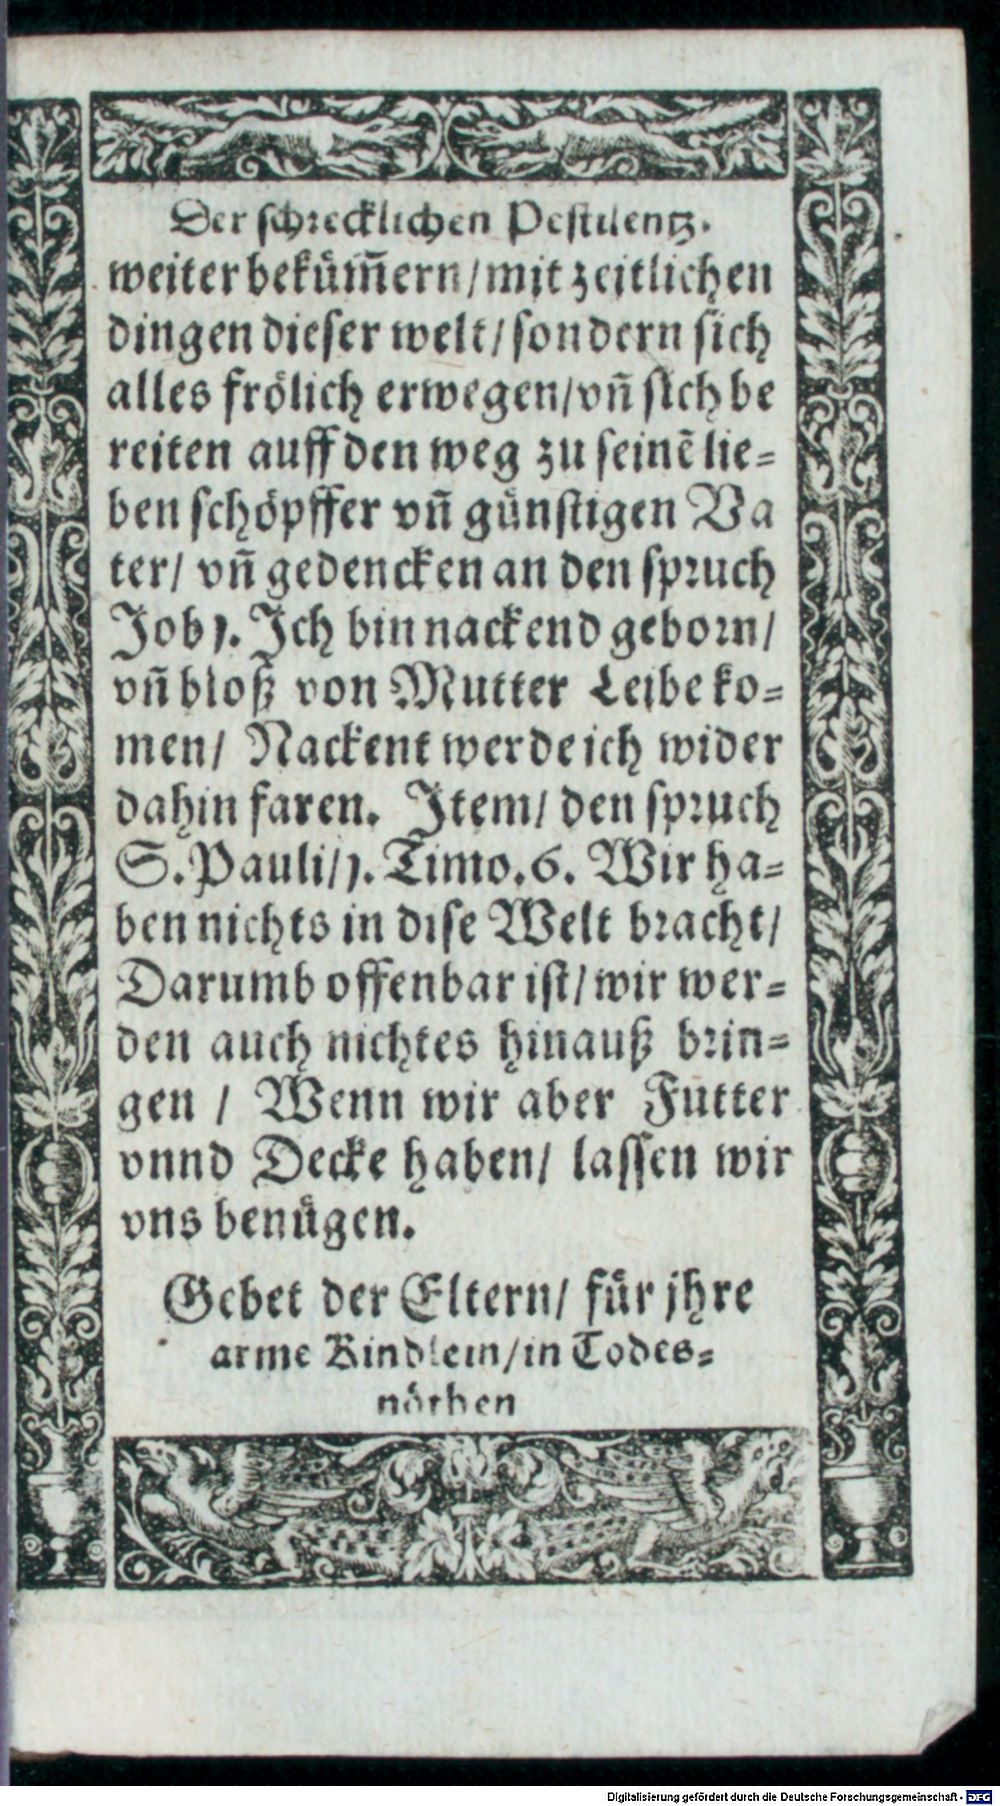 Der schrecklichen Pestilentz.
weiter bekům̃ern / mit zeitlichen
dingen dieser welt / sondern sich
alles frölich erwegen / vñ sich be
reiten auff den weg zu seinẽ lie-
ben schöpffer vñ gůnstigen Va
ter / vñ gedencken an den spruch
Job 1. Ich bin nackend geborn /
vñ bloß von Mutter Leibe ko-
men / Nackent werde ich wider
dahin faren. Item / den spruch
S. Pauli / 1. Timo. 6. Wir ha-
ben nichts in dise Welt bracht /
Darumb offenbar ist / wir wer-
den auch nichtes hinauß brin-
gen / Wenn wir aber Futter
vnnd Decke haben / lassen wir
vns benůgen.
Gebet der Eltern / fůr jhre
arme Kindlein / in Todes-
nöthen
Digitalisierung gefördert durch die Deutsche Forschungsgemeinschaft - DFG